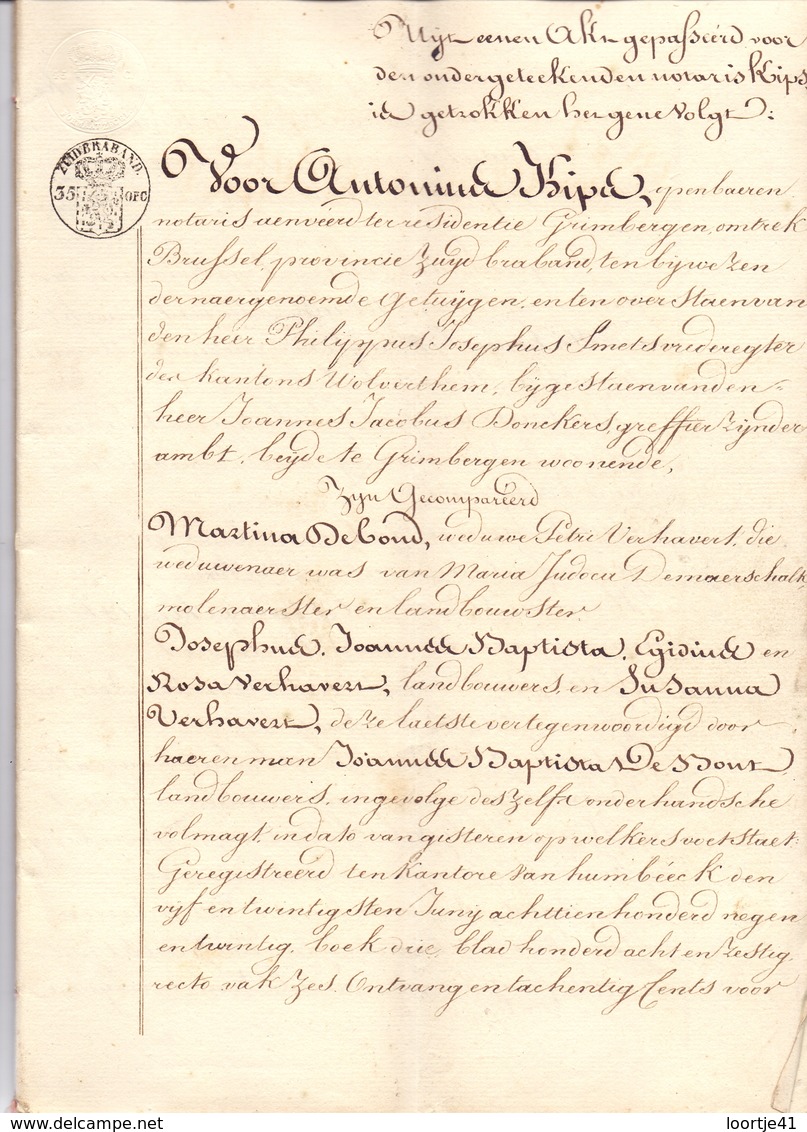 Uijt eenen Akt gepasseérd voor
den ondergeteekenden notaris Kips,
is getrokken het gene volgt:
ZUIDBRABAND.
35 OFC
Voor Antonius Kips, openbaeren
notaris aenveérd ter residentie Grimbergen, omtrek
Brussel, provincie Zuyd braband, ten bijwezen
der naergenoemde getuijgen, en ten overstaen van
den heer Philippus Josephus Smets vrederegter
des kantons Wolverthem, bijgestaen van den
heer Joannes Jacobus Donckers, greffier zijnder
ambt, beijde te Grimbergen woonende,
Zijn Gecompareérd
Martina De Cond, weduwe Petri Verhavert, die
weduwenaer was van Maria Judoca Demaerschalk,
molenaerster en landbouwster.
Josephus, Joannes Baptista, Egidius en
Rosa Verhavert, landbouwers, en Susanna
Verhavert, deze laetste vertegenwoordigd door
haeren man Joannes Baptista De Bont
landbouwers, ingevolge deszelfs onderhandsche
volmagt, in dato van gisteren op welkers voet staet:
Geregistreerd ten Kantore van humbeéck den
vijf en twintigsten Junij achttien honderd negen
en twintig, boek drie, blad honderd acht en zestig,
recto vak zes. Ontvangen tachentig Cents voor
loortje41